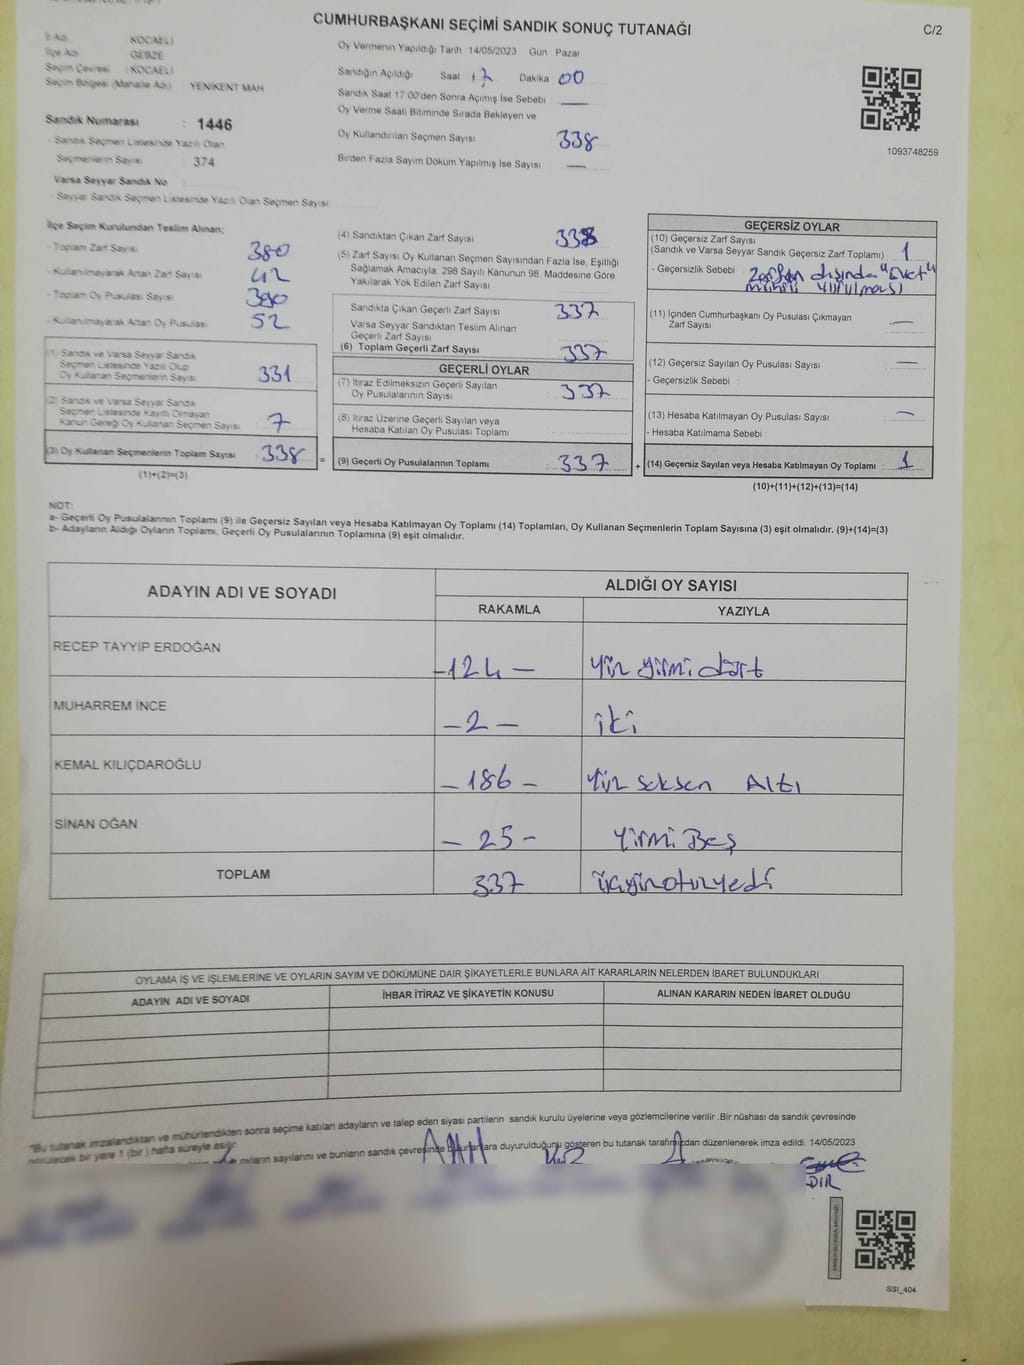 CUMHURBAŞKANI SEÇİMİ SANDIK SONUÇ TUTANAĞI
C/2
İl Adı KOCAELİ
İlçe Adı GEBZE
Seçim Çevresi : KOCAELİ
Seçim Bölgesi (Mahalle Adı) YENİKENT MAH
Sandık Numarası : 1446
- Sandık Seçmen Listesinde Yazılı Olan
Seçmenlerin Sayısı 374
Varsa Seyyar Sandık No
- Seyyar Sandık Seçmen Listesinde Yazılı Olan Seçmen Sayısı
Oy Vermenin Yapıldığı Tarih 14/05/2023 Gün Pazar
Sandığın Açıldığı Saat 17 Dakika 00
Sandık Saat 17.00'den Sonra Açımış İse Sebebi —
Oy Verme Saati Bitiminde Sırada Bekleyen ve
Oy Kullandırılan Seçmen Sayısı 338
Birden Fazla Sayım Döküm Yapılmış İse Sayısı —
1093748259
İlçe Seçim Kurulundan Teslim Alınan;
- Toplam Zarf Sayısı 380
- Kullanılmayarak Artan Zarf Sayısı 42
- Toplam Oy Pusulası Sayısı 390
- Kullanılmayarak Artan Oy Pusulası 52
(1) Sandık ve Varsa Seyyar Sandık
Seçmen Listesinde Yazılı Olup
Oy Kullanan Seçmenlerin Sayısı 331
(2) Sandık ve Varsa Seyyar Sandık
Seçmen Listesinde Kayıtlı Olmayan
Kanun Gereği Oy Kullanan Seçmen Sayısı 7
(3) Oy Kullanan Seçmenlerin Toplam Sayısı 338 =
(1)+(2)=(3)
(4) Sandıktan Çıkan Zarf Sayısı 338
(5) Zarf Sayısı Oy Kullanan Seçmen Sayısından Fazla İse, Eşitliği
Sağlamak Amacıyla, 298 Sayılı Kanunun 98. Maddesine Göre
Yakılarak Yok Edilen Zarf Sayısı
Sandıkta Çıkan Geçerli Zarf Sayısı 337
Varsa Seyyar Sandıktan Teslim Alınan
Geçerli Zarf Sayısı
(6) Toplam Geçerli Zarf Sayısı 337
GEÇERLİ OYLAR
(7) İtiraz Edilmeksizin Geçerli Sayılan
Oy Pusulalarının Sayısı 337
(8) İtiraz Üzerine Geçerli Sayılan veya
Hesaba Katılan Oy Pusulası Toplamı
(9) Geçerli Oy Pusulalarının Toplamı 337 +
GEÇERSİZ OYLAR
(10) Geçersiz Zarf Sayısı
(Sandık ve Varsa Seyyar Sandık Geçersiz Zarf Toplamı) 1
- Geçersizlik Sebebi Zarfın dışında "Evet"
(11) İçinden Cumhurbaşkanı Oy Pusulası Çıkmayan
Zarf Sayısı —
(12) Geçersiz Sayılan Oy Pusulası Sayısı —
- Geçersizlik Sebebi :
(13) Hesaba Katılmayan Oy Pusulası Sayısı —
- Hesaba Katılmama Sebebi :
(14) Geçersiz Sayılan veya Hesaba Katılmayan Oy Toplamı : 1
(10)+(11)+(12)+(13)=(14)
NOT:
a- Geçerli Oy Pusulalarının Toplamı (9) ile Geçersiz Sayılan veya Hesaba Katılmayan Oy Toplamı (14) Toplamları, Oy Kullanan Seçmenlerin Toplam Sayısına (3) eşit olmalıdır. (9)+(14)=(3)
b- Adayların Aldığı Oyların Toplamı, Geçerli Oy Pusulalarının Toplamına (9) eşit olmalıdır.
ADAYIN ADI VE SOYADI ALDIĞI OY SAYISI
RAKAMLA YAZIYLA
RECEP TAYYİP ERDOĞAN -124- Yüz yirmi dört
MUHARREM İNCE -2- iki
KEMAL KILIÇDAROĞLU -186- Yüz seksen Altı
SİNAN OĞAN -25- Yirmi Beş
TOPLAM 337 üçyüzotuzyedi
OYLAMA İŞ VE İŞLEMLERİNE VE OYLARIN SAYIM VE DÖKÜMÜNE DAİR ŞİKAYETLERLE BUNLARA AİT KARARLARIN NELERDEN İBARET BULUNDUKLARI
ADAYIN ADI VE SOYADI İHBAR İTİRAZ VE ŞİKAYETİN KONUSU ALINAN KARARIN NEDEN İBARET OLDUĞU
"Bu tutanak imzalandıktan ve mühürlendikten sonra seçime katılan adayların ve talep eden siyasi partilerin sandık kurulu üyelerine veya gözlemcilerine verilir .Bir nüshası da sandık çevresinde
görülecek bir yere 1 (bir ) hafta süreyle asılır.
oyların sayılarını ve bunların sandık çevresinde bulunanlara duyurulduğunu gösteren bu tutanak tarafımızdan düzenlenerek imza edildi. 14/05/2023
DIR
SSI_404